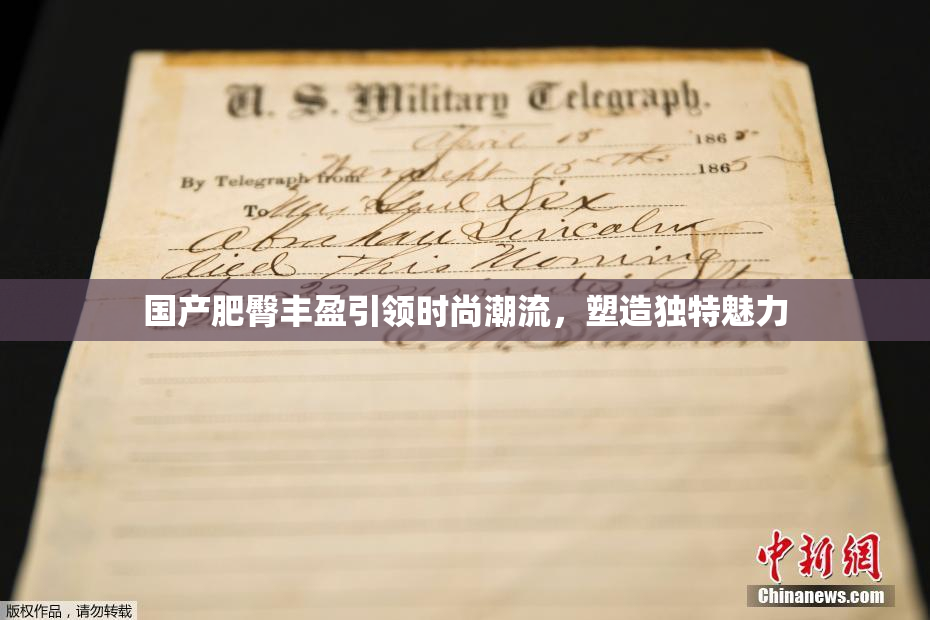 U. S. Military Telegraph.
April 15 1865
By Telegraph from War Dept 15th 1865
To Maj Genl Dix
Abraham Lincoln
died This Morning
at 22 minutes after
国产肥臀丰盈引领时尚潮流，塑造独特魅力
E. M. Stanton
中新网
Chinanews.com
版权作品，请勿转载